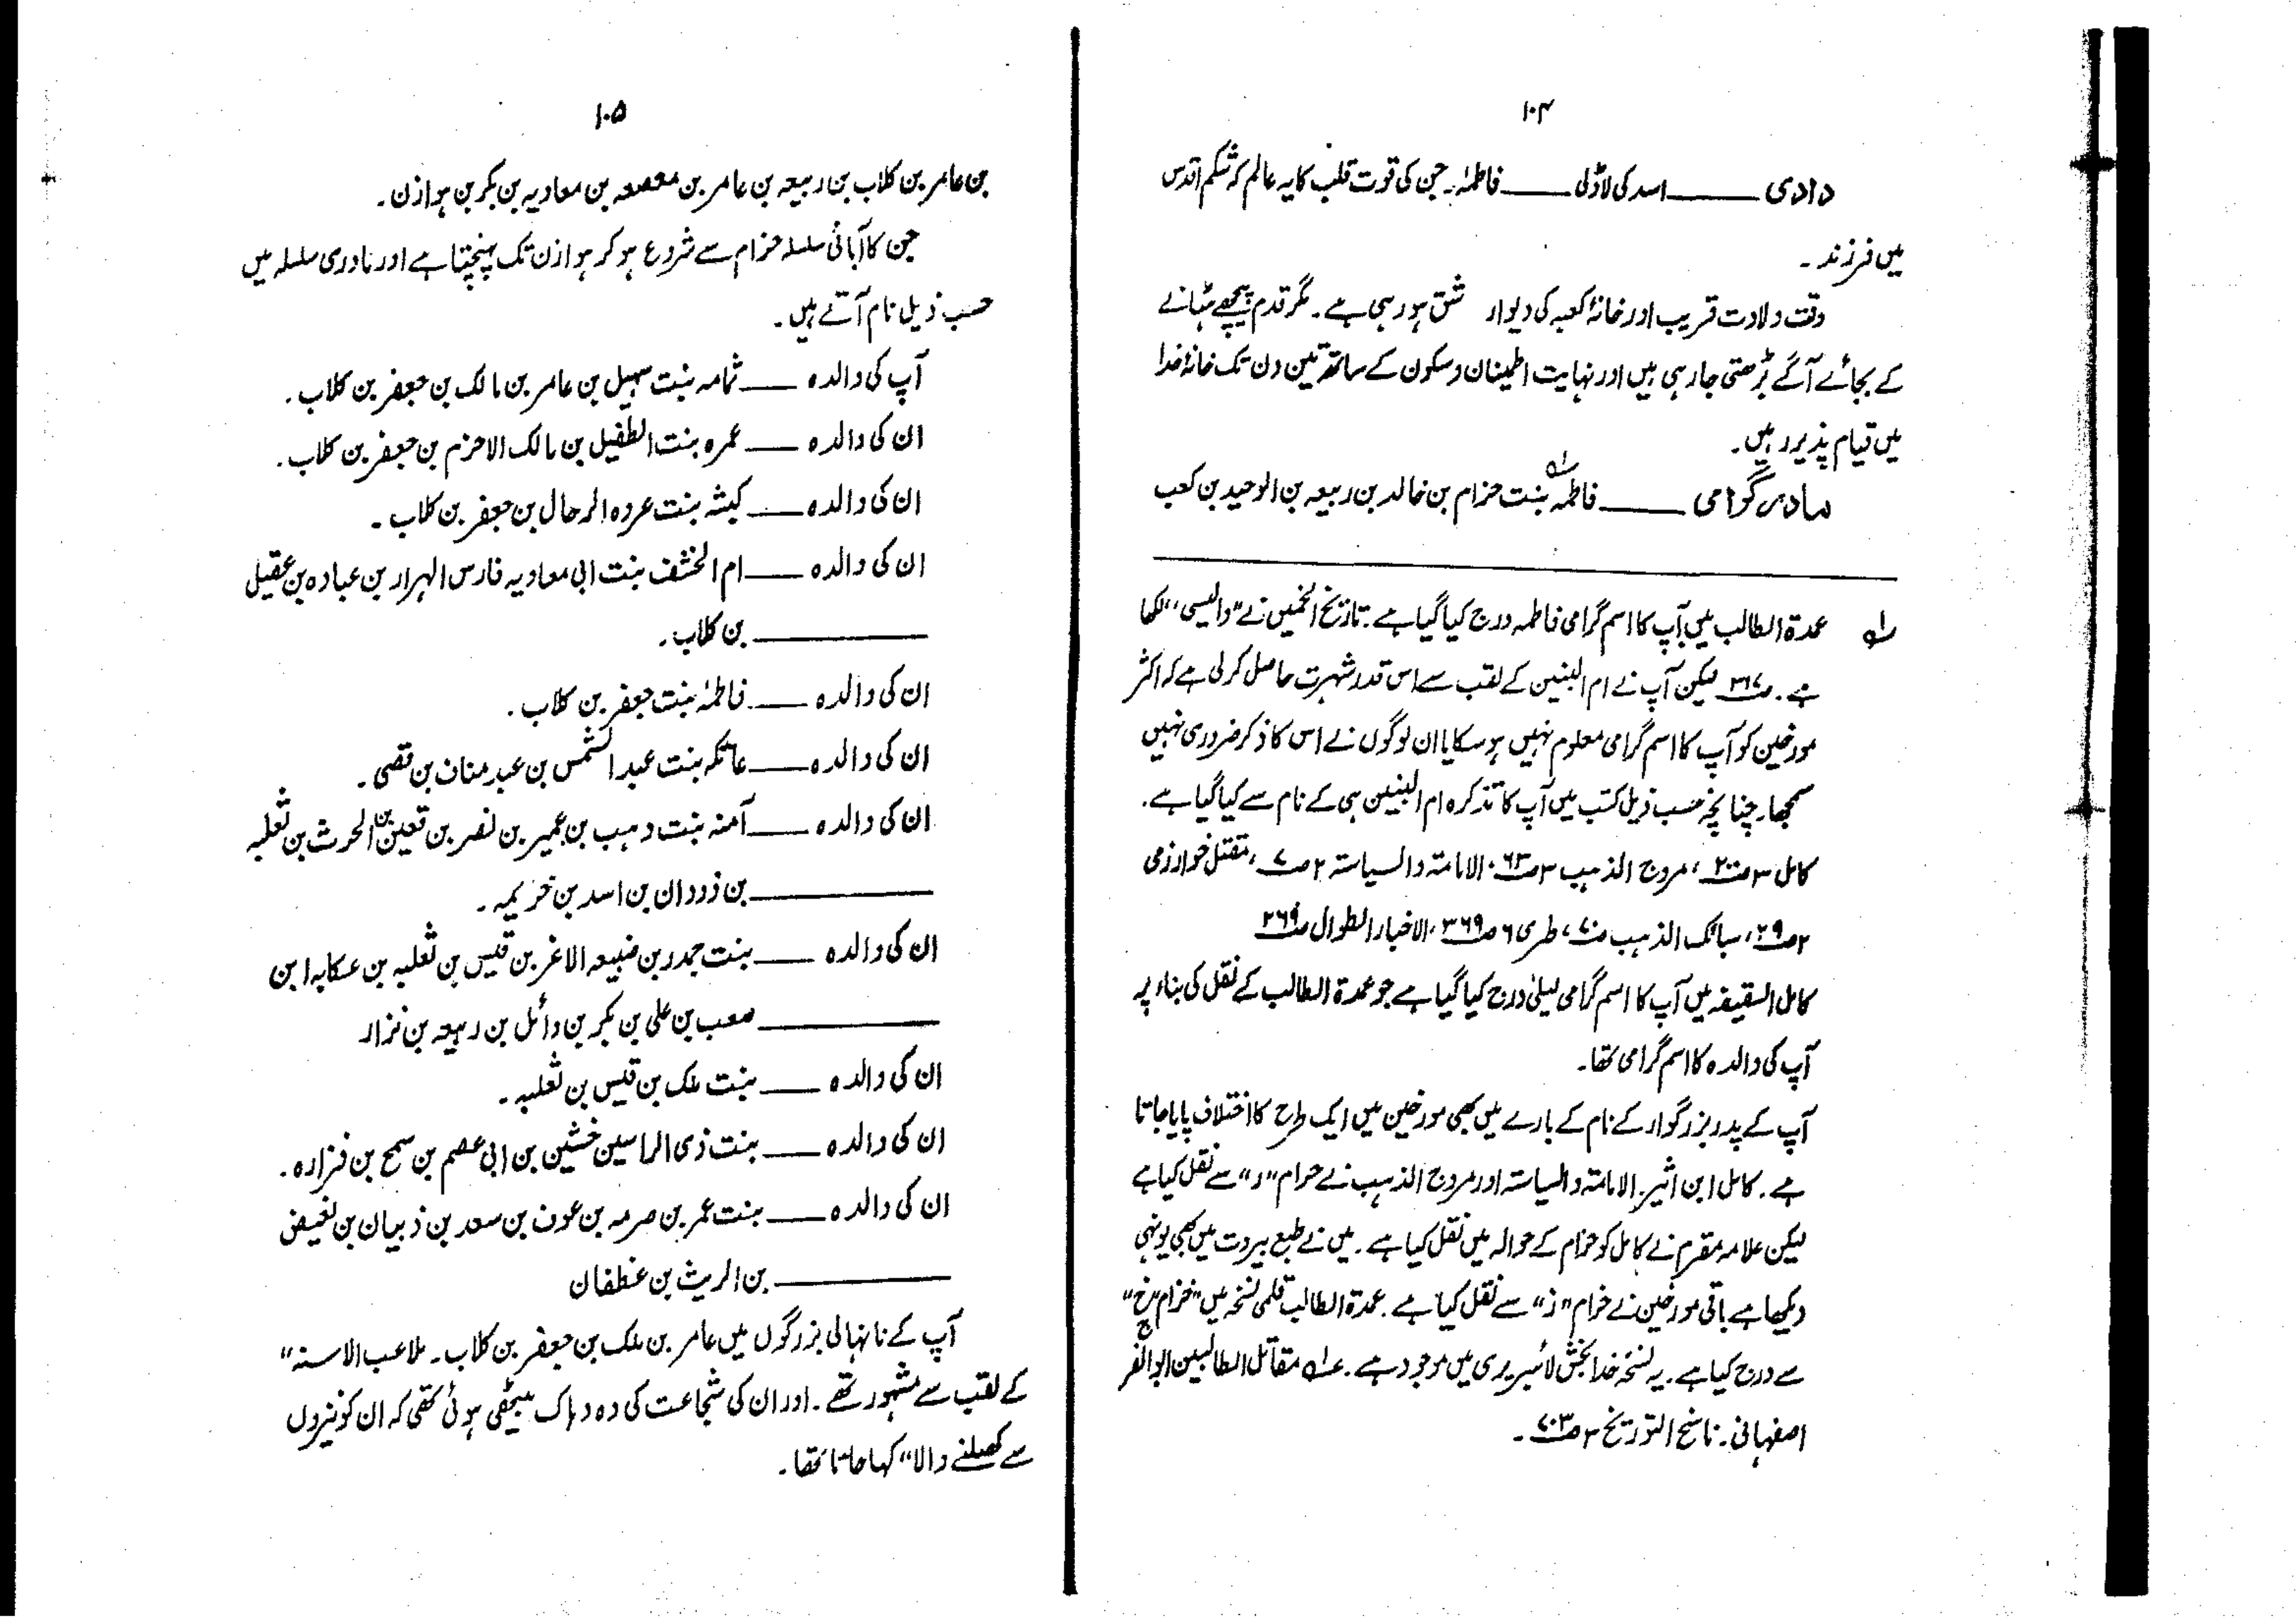 ۱۰۴
دادی ــــــ اسد کی لاڈلی ــــــ فاطمہؑ۔ جن کی قوت قلب کا یہ عالم کہ شکم اقدس
میں فرزند ۔
وقت ولادت قریب اور خانۂ کعبہ کی دیوار شق ہو رہی ہے ۔ مگر قدم پیچھے ہٹانے
کے بجائے آگے بڑھتی جا رہی ہیں اور نہایت اطمینان و سکون کے ساتھ تین دن تک خانۂ خدا
میں قیام پذیر رہیں ۔
مادر گرامی ــــــ فاطمہ؎۱ بنت حزام بن خالد بن ربیعہ بن الوحید بن کعب
؎۱ عمدۃ الطالب میں آپ کا اسم گرامی فاطمہ درج کیا گیا ہے ۔ تاریخ الخمیس نے "والیسی" لکھا
ہے ۔ ص۳۱۷ لیکن آپ نے ام البنین کے لقب سے اس قدر شہرت حاصل کر لی ہے کہ اکثر
مورخین کو آپ کا اسم گرامی معلوم نہیں ہو سکا یا ان لوگوں نے اس کا ذکر ضروری نہیں
سمجھا۔ چنانچہ حسب ذیل کتب میں آپ کا تذکرہ ام البنین ہی کے نام سے کیا گیا ہے ۔
کامل ۳ ص۲۰۰، مروج الذہب ۳ ص۶۳۔ الامامۃ والسیاستہ ۲ ص۷، مقتل خوارزمی
۲ ص۲۹، سبائک الذہب ص۷۰، طبری ۶ ص۳۶۹، الاخبار الطوال ص۲۶۹
کامل السقیفہ میں آپ کا اسم گرامی لیلیٰ درج کیا گیا ہے جو عمدۃ الطالب کے نقل کی بناء پر
آپ کی والدہ کا اسم گرامی تھا۔
آپ کے پدر بزرگوار کے نام کے بارے میں بھی مورخین میں ایک طرح کا اختلاف پایا جاتا
ہے ۔ کامل ابن اثیر۔ الامامتہ والسیاستہ اور مروج الذہب نے حرام "ر" سے نقل کیا ہے
لیکن علامہ مقرم نے کامل کو حزام کے حوالہ میں نقل کیا ہے ۔ میں نے طبع بیروت میں بھی یونہی
دیکھا ہے باقی مورخین نے حزام "ز" سے نقل کیا ہے ۔ عمدۃ الطالب قلمی نسخہ میں "خزام" "خ"
سے درج کیا ہے ۔ یہ نسخہ خدا بخش لائبریری میں موجود ہے ۔ مقاتل الطالبین ابو الفرج
اصفہانی۔ ناسخ التوریخ ۳ ص۷۰۳ ۔
۱۰۵
بن عامر بن کلاب بن ربیعہ بن عامر بن معصعہ بن معاویہ بن بکر بن ہوازن ۔
جن کا آبائی سلسلہ حزام سے شروع ہو کر ہوازن تک پہنچتا ہے اور مادری سلسلہ میں
حسب ذیل نام آتے ہیں ۔
آپ کی والدہ ــــــ ثمامہ بنت سہیل بن عامر بن مالک بن جعفر بن کلاب ۔
ان کی والدہ ــــــ عمرہ بنت الطفیل بن مالک الاحزم بن جعفر بن کلاب ۔
ان کی والدہ ــــــ کبشہ بنت عروہ الرحال بن جعفر بن کلاب ۔
ان کی والدہ ــــــ ام الخشف بنت ابی معاویہ فارس الہرار بن عبادہ بن عقیل
ــــــ بن کلاب ۔
ان کی والدہ ــــــ فاطمہؑ بنت جعفر بن کلاب ۔
ان کی والدہ ــــــ عاتکہ بنت عبد الشمس بن عبد مناف بن قصی ۔
ان کی والدہ ــــــ آمنہ بنت وہب بن عمیر بن نصر بن قعین بن الحرث بن ثعلبہ
ــــــ بن ذودان بن اسد بن خزیمہ ۔
ان کی والدہ ــــــ بنت جحدر بن ضبیعہ الاغر بن قیس بن ثعلبہ بن عکابہ ابن
ــــــ صعب بن علی بن بکر بن وائل بن ربیعہ بن نزار
ان کی والدہ ــــــ بنت ملک بن قیس بن ثعلبہ ۔
ان کی والدہ ــــــ بنت ذی الراسین خشین بن ابی عصم بن سمح بن فزارہ ۔
ان کی والدہ ــــــ بنت عمر بن صرمہ بن عوف بن سعد بن ذبیان بن بغیض
ــــــ بن الریث بن غطفان
آپ کے نانہالی بزرگوں میں عامر بن ملک بن جعفر بن کلاب ۔ ملاعب الاسنہ"
کے لقب سے مشہور تھے ۔ اور ان کی شجاعت کی وہ دہاک بیٹھی ہوئی تھی کہ ان کو نیزوں
سے کھیلنے والا" کہا جاتا تھا ۔